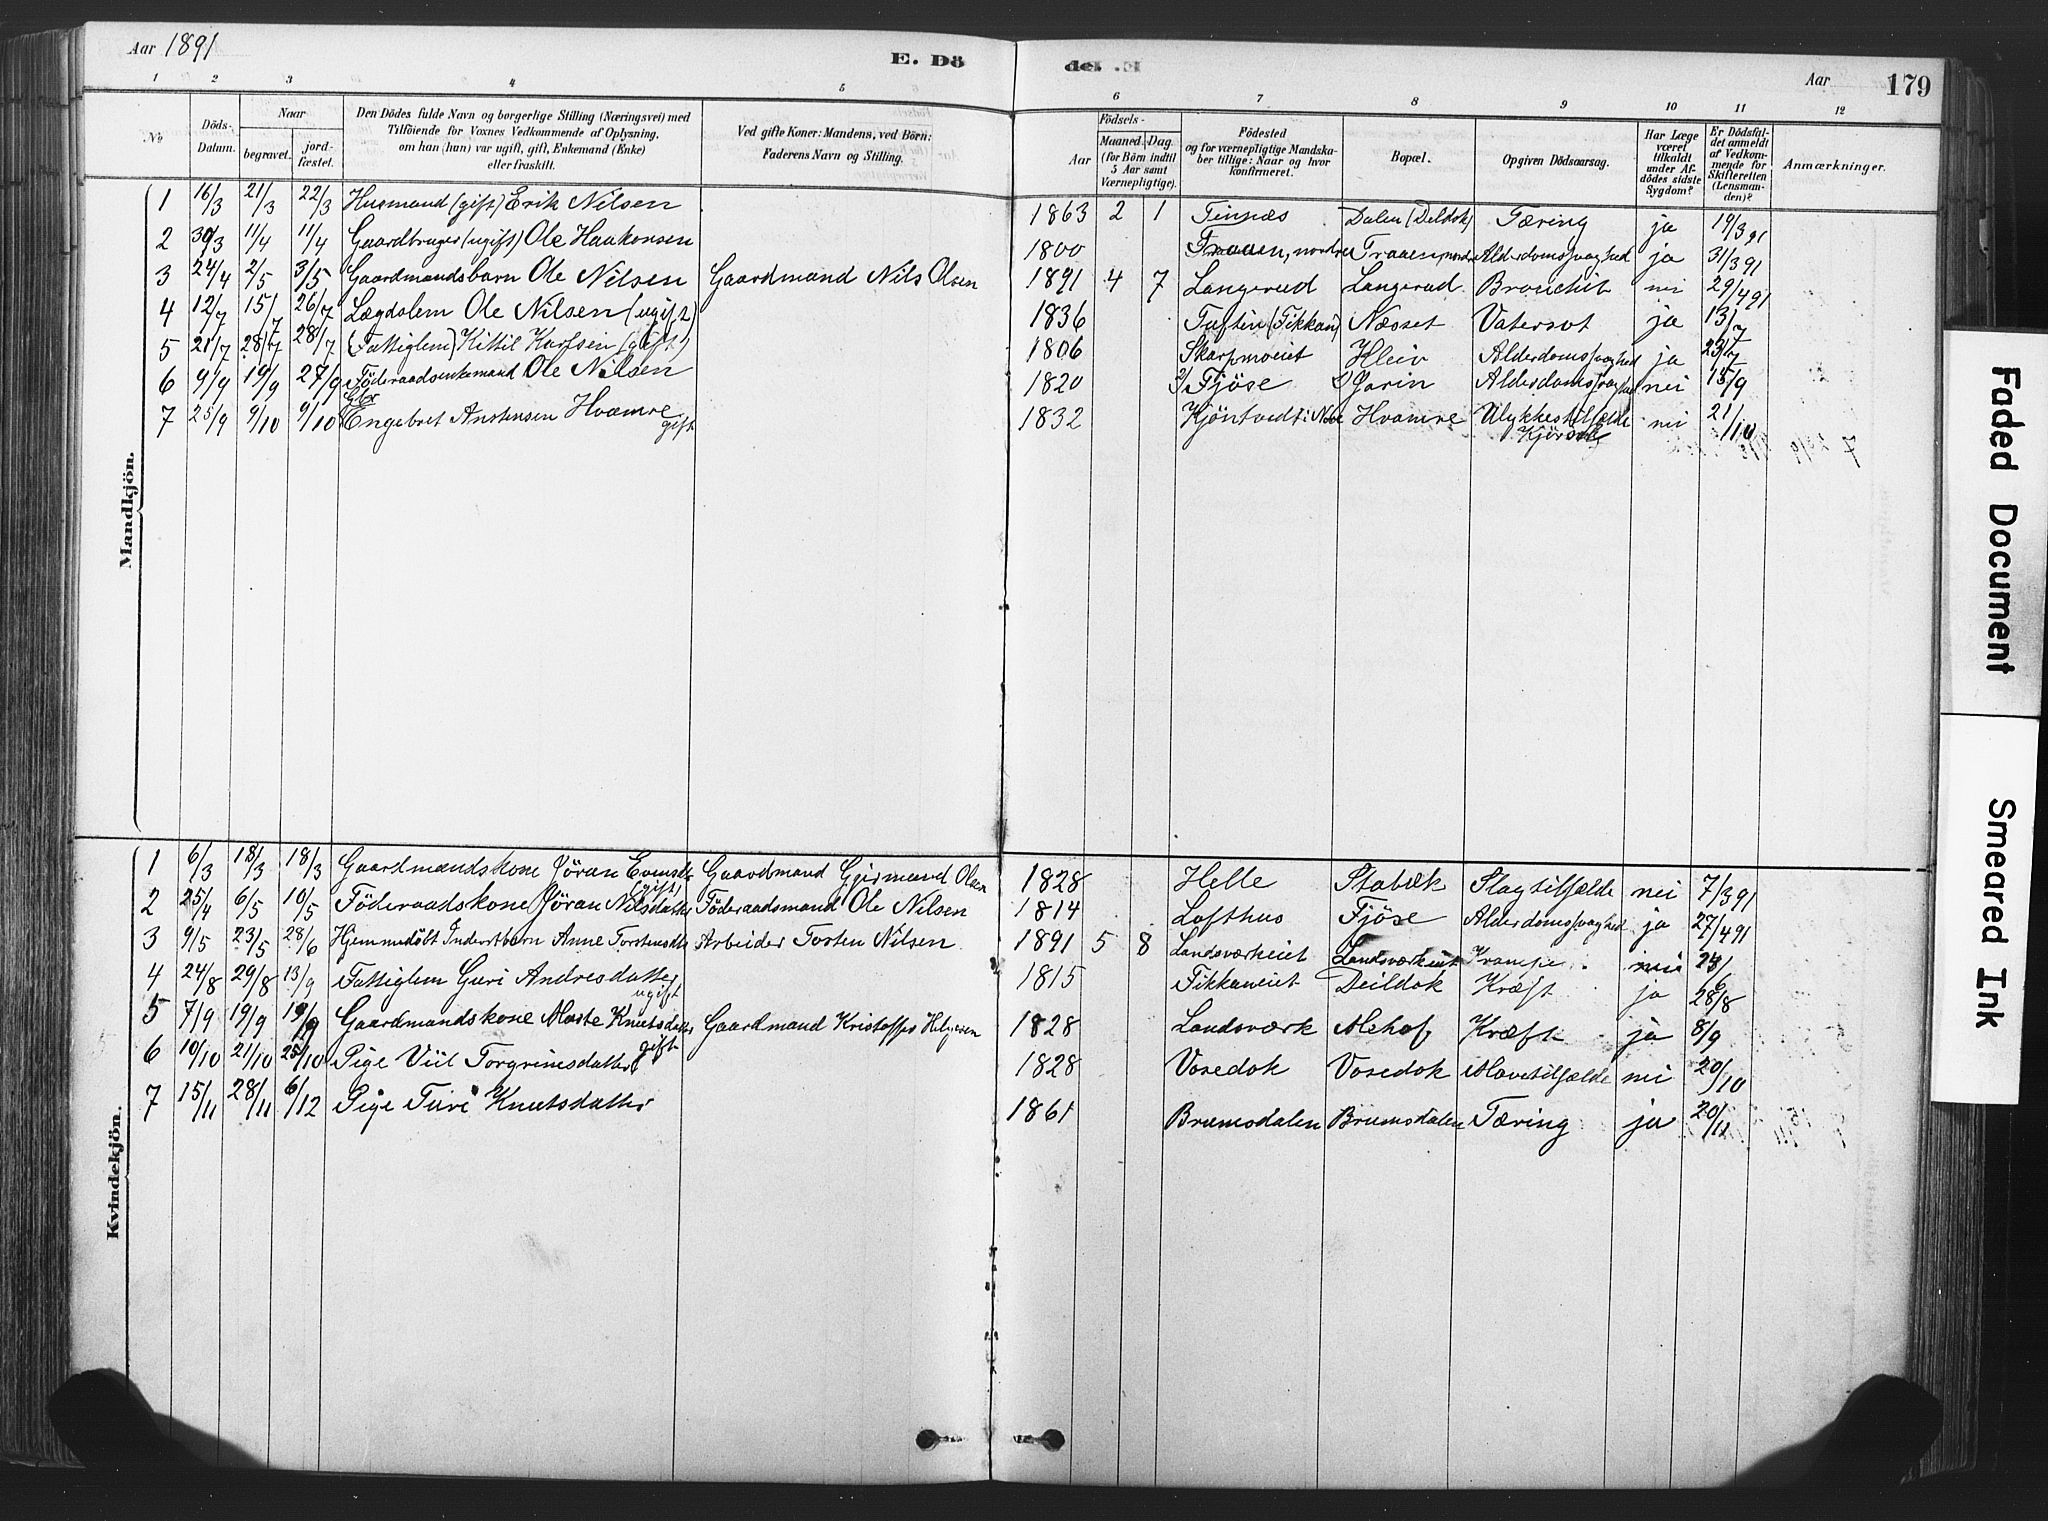 Aar 1891
E. Dö
de.
Aar
179
1 2 3 4 5 6 7 8 9 10 11 12
No
Döds-Datum.
Naar
begravet.
jord-fæstet.
Den Dödes fulde Navn og borgerlige Stilling (Næringsvei) med
Tilföiende for Voxnes Vedkommende af Oplysning,
om han (hun) var ugift, gift, Enkemand (Enke)
eller fraskilt.
Ved gifte Koner: Mandens, ved Börn:
Faderens Navn og Stilling.
Födsels-
Aar
Maaned. Dag.
(for Börn indtil
5 Aar samt
Værnepligtige).
Födested
og for værnepligtige Mandska-
ber tillige: Naar og hvor
konfirmeret.
Bopæl.
Opgiven Dödsaarsag.
Har Læge
været
tilkaldt
under Af-
dödes sidste
Sygdom?
Er Dödsfal-
det anmeldt
af Vedkom-
mende for
Skifteretten
(Lensman-
den)?
Anmærkninger.
Mandkjön.
1 16/3 21/3 22/3 Husmand (gift) Erik Nilsen 1863 2 1 Tinnæs Dalen (Deldok) Tæring ja 19/3 91
2 30/3 11/4 11/4 Gaardbruger (ugift) Ole Haakonsen 1800 Traaen, nordre Traaen, nordre Alderdomssvaghed ja 31/3 91
3 24/4 2/5 3/5 Gaardmandsbarn Ole Nilsen Gaardmand Nils Olsen 1891 4 7 Langerud Langerud Bronchit nei 29/4 91
4 12/7 15/7 26/7 Lægdslem Ole Nilsen (ugift) 1836 Tuftin (Tikkan) Næsset Vatersot ja 13/7
5 21/7 28/7 28/7 (Fattiglem) Kittil (gift) 1806 Skarpmoeiet Hleiv Alderdomssvaghed ja 23/7
6 9/9 19/9 27/9 Föderaadsenkemand Ole Nilsen 1820 Fjöse Garin Alderdomssvaghed nei 15/9
7 25/9 9/10 9/10 Gbr Engebret Anstensen Hvæmre gift 1832 Kjöntvedt i Hvamre Ulykkestilfælde nei 21/10
Kvindekjön.
1 6/3 18/3 18/3 Gaardmandskone Jöran (gift) Gaardmand Gjermund Olsen 1828 Helle Stabæk Slagtilfælde nei 7/3 91
2 25/4 6/5 10/5 Föderaadskone Jöran Nilsdatter Föderaadsmand Ole Nilsen 1814 Lofthus Fjöse Alderdomssvaghed ja 27/4 91
3 9/5 23/5 28/6 Hjemmedöbt Anne Torstensdtr Arbeider Tosten Nilsen 1891 5 8 Landsværkeiet Landsværkeiet Krampe nei 23/6
4 24/8 29/8 13/9 Fattiglem Guri Andresdatter ugift 1815 Tikkaneiet Deildok Kræft ja 28/8
5 7/9 19/9 19/9 Gaardmandskone Aaste Knutsdatter gift Gaardmand Kristoffer Helgesen 1828 Landsværk Alehof Kræft ja 8/9
6 10/10 21/10 25/10 Pige Viil Torgrimsdatter 1828 Vosedok Vosedok Mavetilfælde nei 20/10
7 15/11 28/11 6/12 Pige Turi Knutsdatter 1861 Brumsdalen Brumsdalen Tæring ja 20/11
Faded Document
Smeared Ink